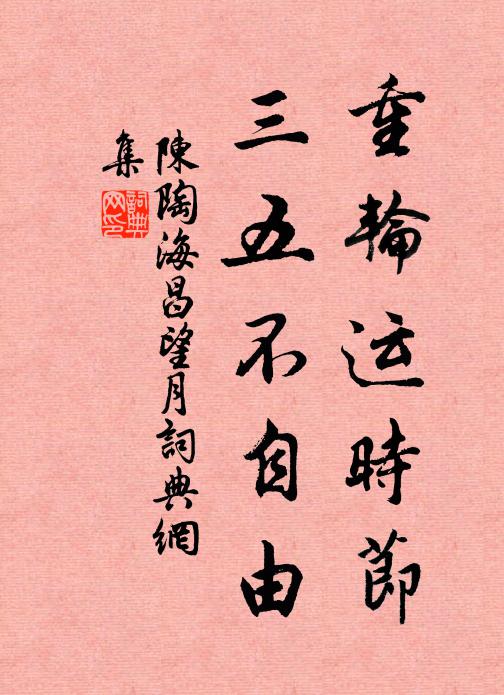 重輪运時節
三五不自由
陳陶海昌望月詞典網
集
詞典
网印